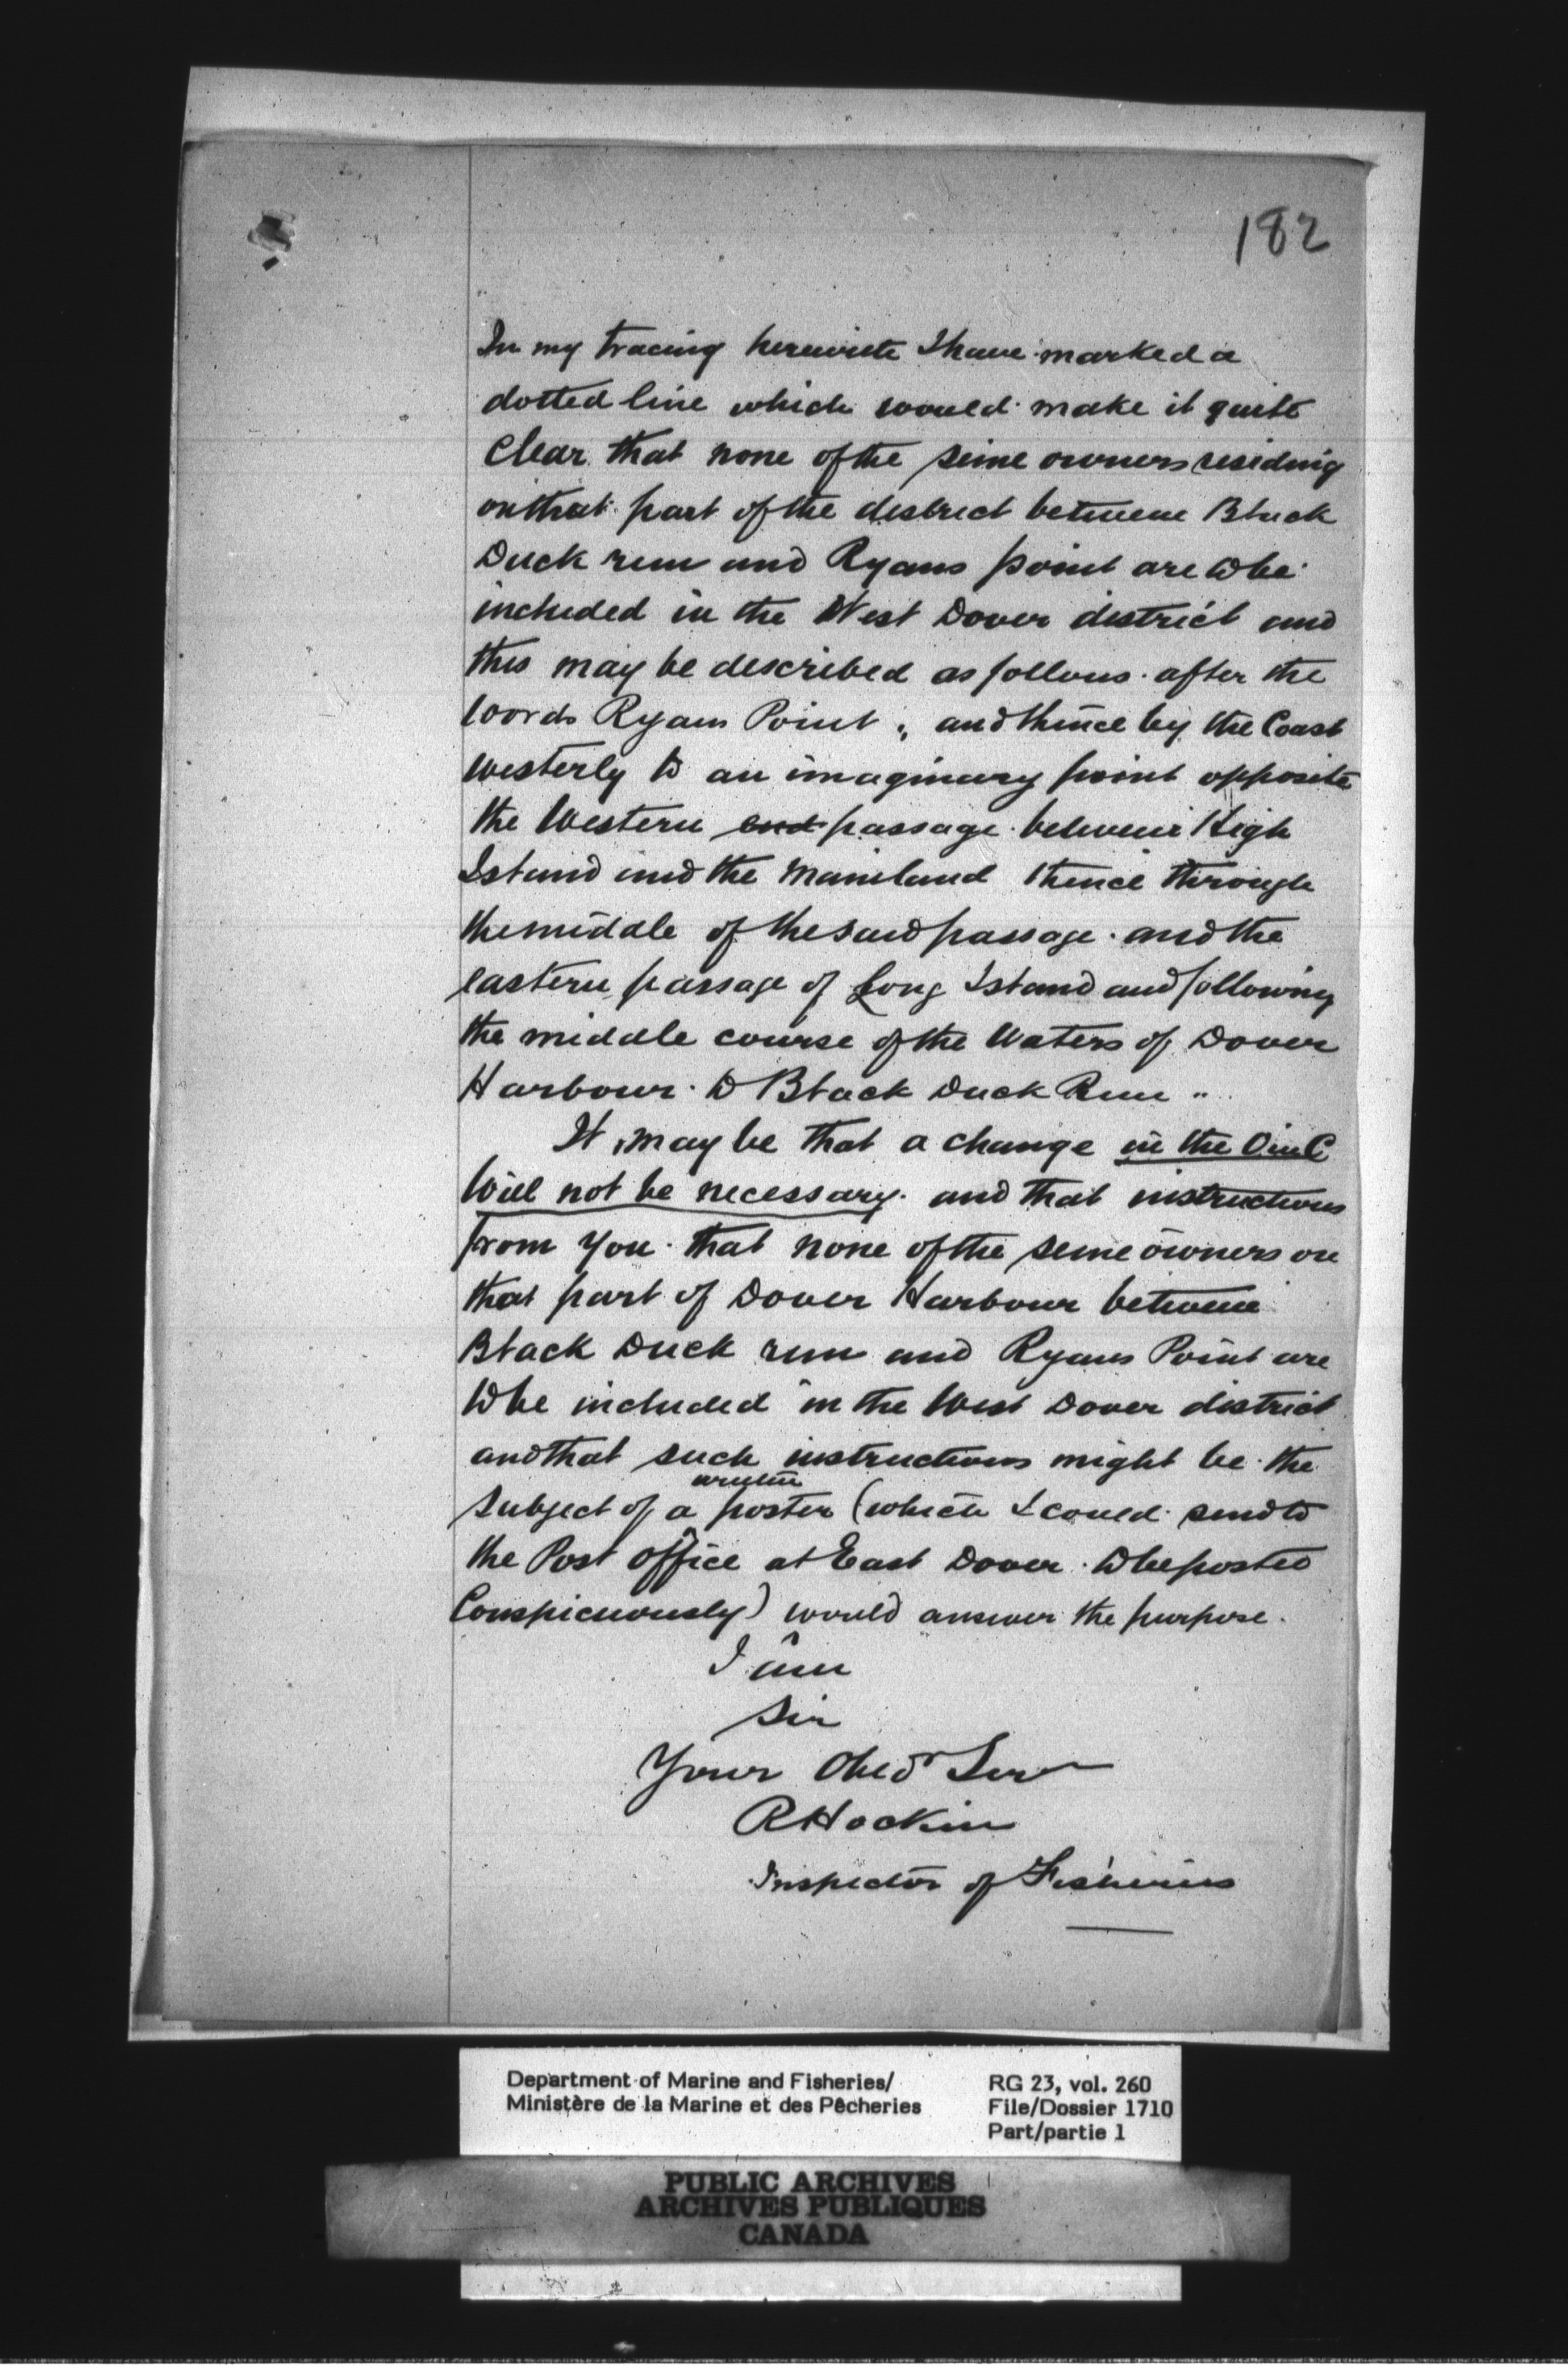 182
In my tracing herewith I have marked a
dotted line which would make it quite
clear that none of the seine owners residing
on that part of the district between Black
Duck run and Ryans point are to be
included in the West Dover district and
this may be described as follows. after the
words Ryans Point „ and thence by the Coast
westerly to an imaginary point opposite
the Western end passage between High
Island and the Mainland thence through
the middle of the said passage and the
eastern passage of Long Island and following
the middle course of the Waters of Dover
Harbour to Black Duck Run "
It may be that a change in the O in C
will not be necessary. and that instructions
from you that none of the seine owners on
that part of Dover Harbour between
Black Duck run and Ryans Point are
to be included in the West Dover district
and that such instructions might be the
written
subject of a poster (which I could send to
the Post Office at East Dover to be posted
Conspicuously) would answer the purpose.
I am
Sir
Your Obedt Serv
R Hockin
Inspector of Fisheries
Department of Marine and Fisheries/
Ministère de la Marine et des Pêcheries
RG 23, vol. 260
File/Dossier 1710
Part/partie 1
PUBLIC ARCHIVES
ARCHIVES PUBLIQUES
CANADA